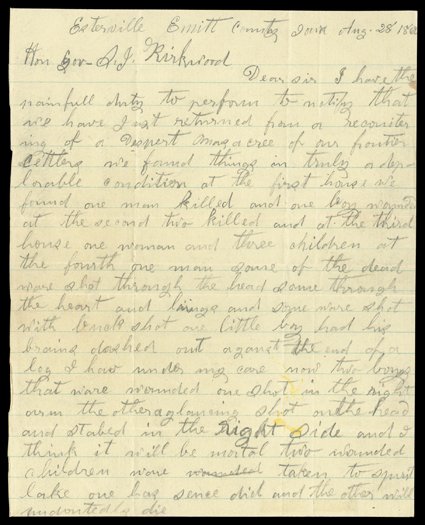 Esterville Emitt County Iowa Aug. 28 186
Hon Gov S. J. Kirkwood
Dear sir I have the
painfull duty to perform to notify that
we have Just returned from a reconiter
ing of a Despert Masacree of our frontier
Cettlers we found things in truly a dep
lorable condition at the first house we
found one man killed and one boy wounded
at the second two killed and at the third
house one woman and three children at
the fourth one man some of the dead
ware shot through the head some through
the heart and lungs and some ware shot
with buck shot one little boy had his
brains dashed out against the end of a
log I have under my care now two boys
that ware wounded one shot in the right
arm the other a glancing shot on the head
and stabed in the right side and I
think it will be mortal two wounded
children ware taken to spirit
lake one has sence did and the other will
undoutedly die